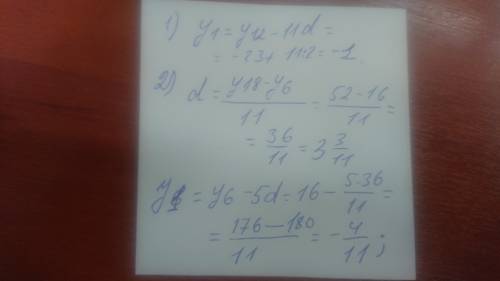 1) y₁ = y₁₂ - 11d =
= -23 + 11·2 = -1.
2) d = (y18 - y6)/11 = (52 - 16)/11 =
= 36/11 = 3 3/11
y1 = y6 - 5d = 16 - (5·36)/11 =
= (176 - 180)/11 = -4/11;